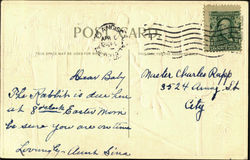 POST CARD
THIS SPACE MAY BE USED FOR
Dear Baby
The Rabbit is due here
at 8 oclock Easter Morn
be sure you are on time
Lovingly - Aunt
Master Charles Rapp
3524
City